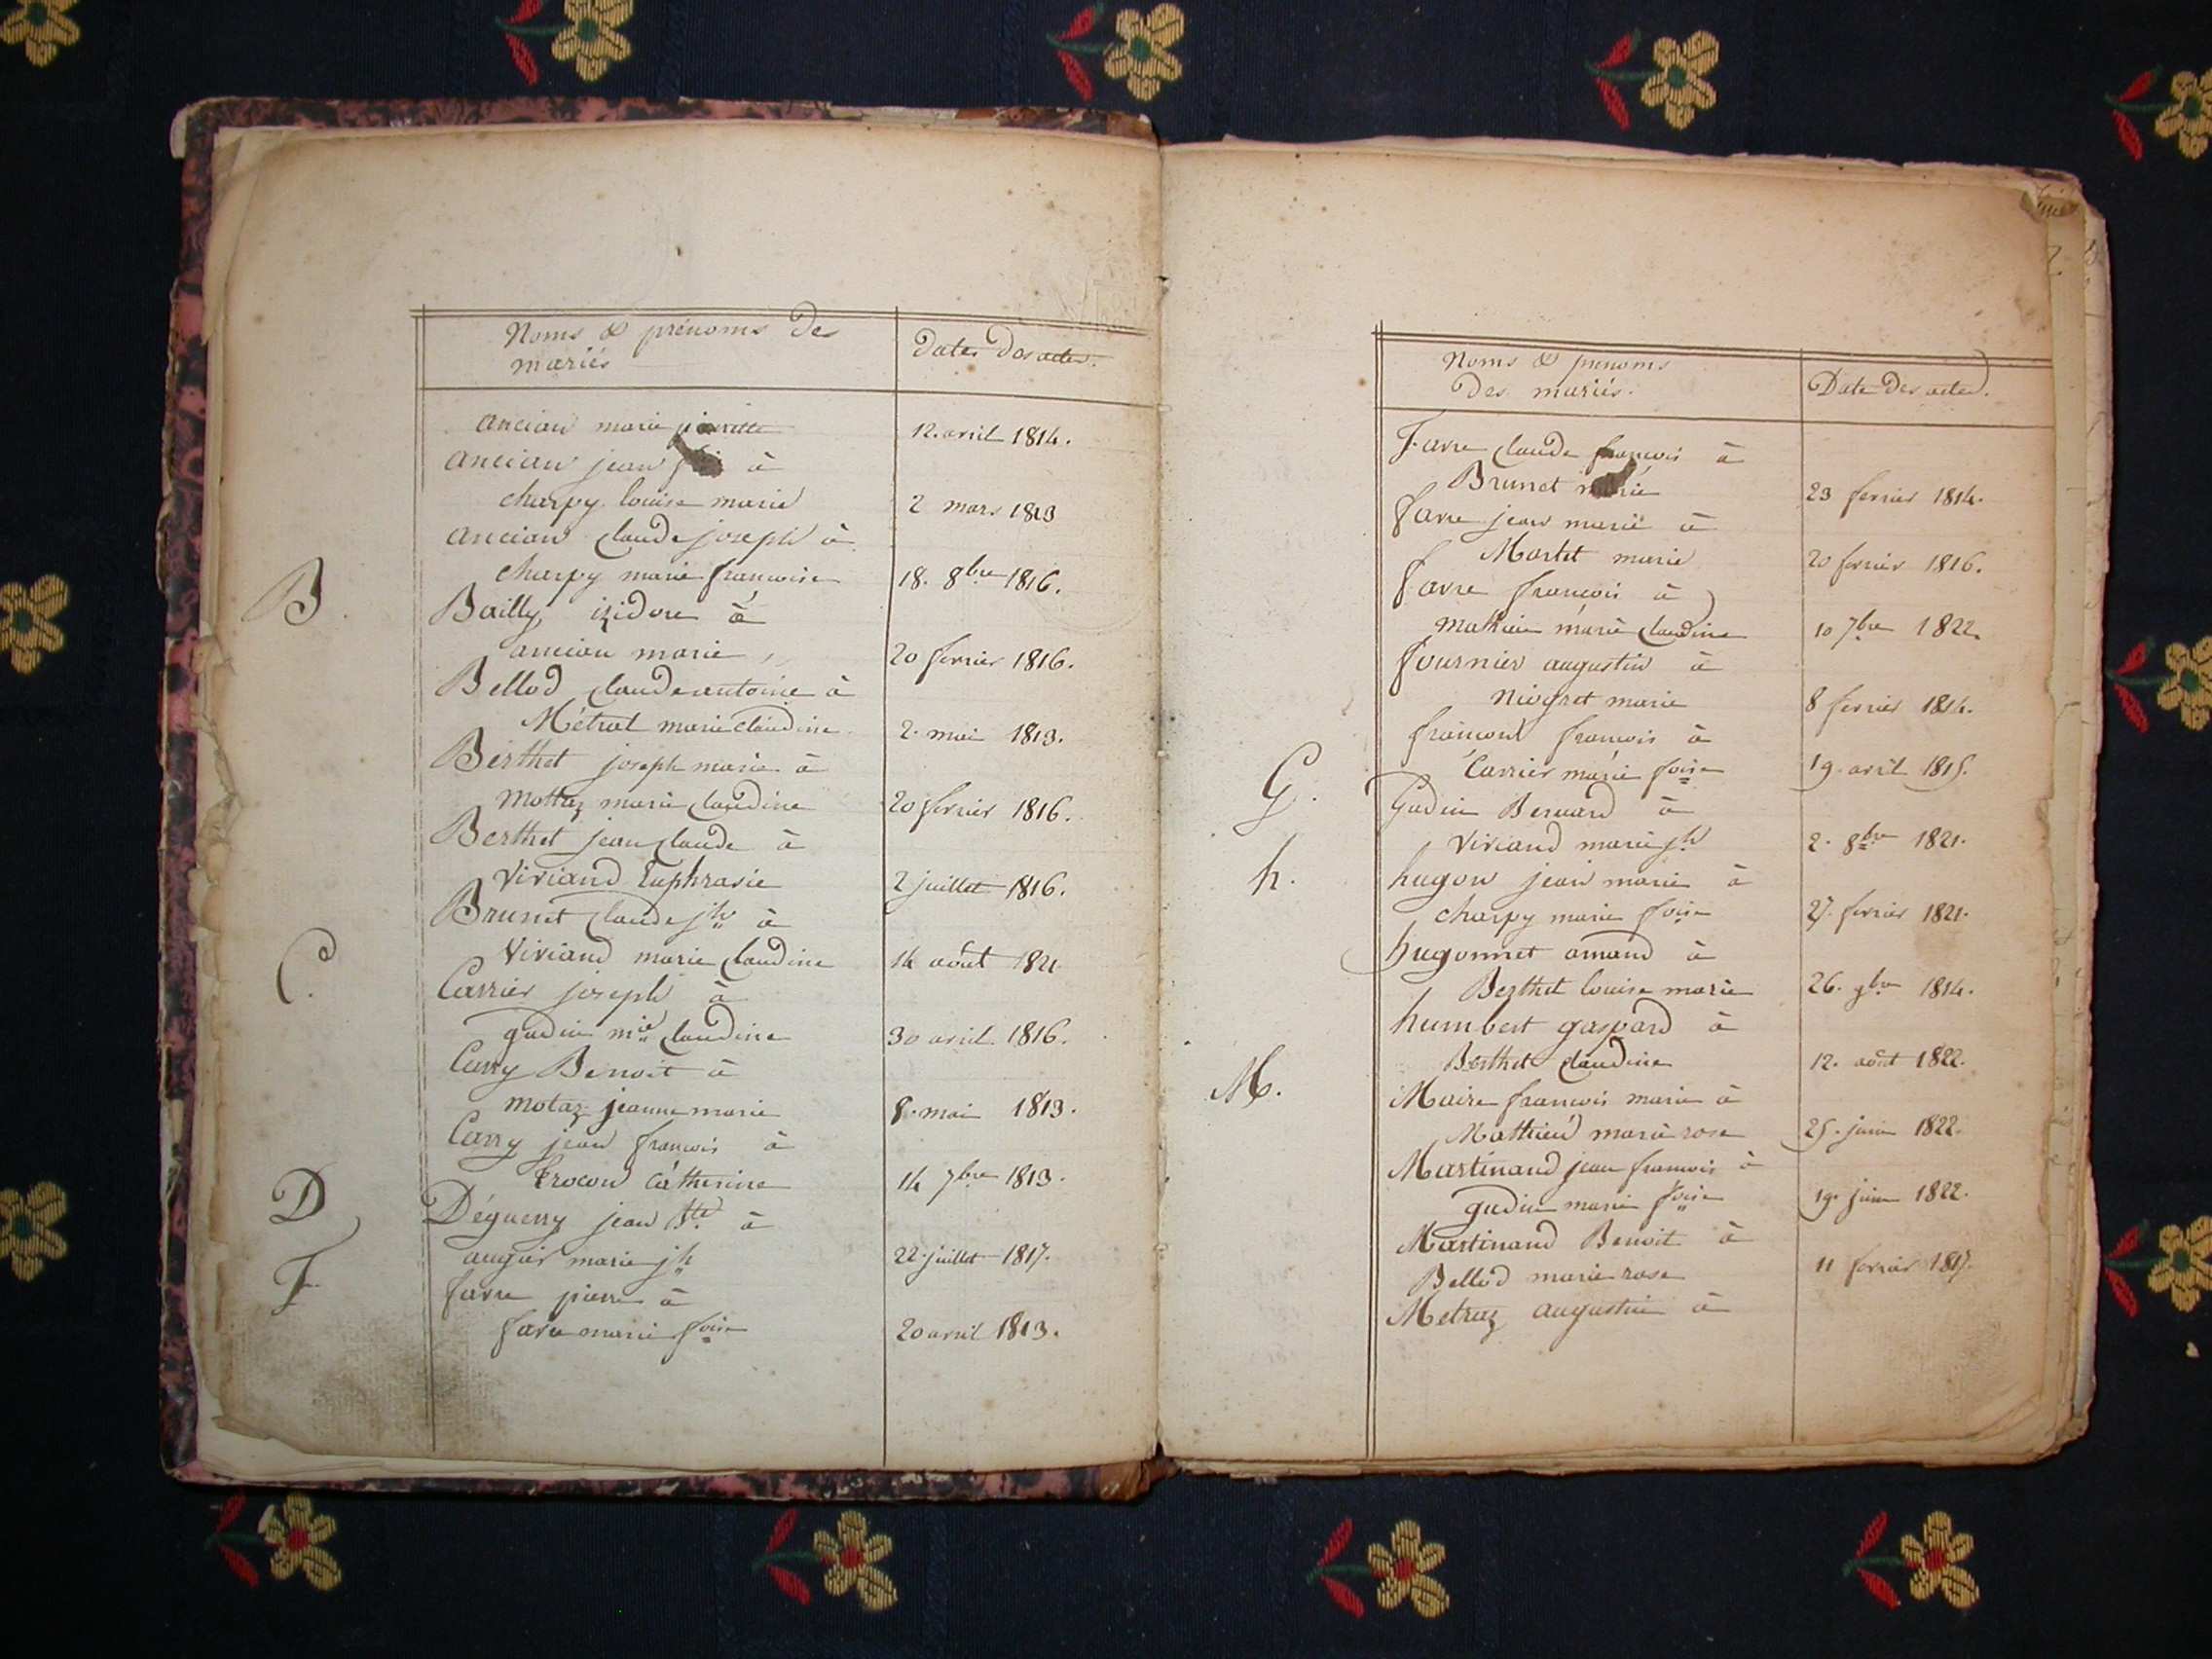 Noms & prénoms des
mariés
Dates des actes.
ancian marie pierrette 12. avril 1814.
ancian jean à
charpy louise marie 2 mars 1813
ancian claude joseph à
charpy marie francoise 18. 8bre 1816.
B.
Bailly izidore à
ancian marie 20 fevrier 1816.
Bellod claude antoine à
Métral marie claudine 2. mai 1813.
Berthet joseph marie à
Mottaz marie claudine 20 fevrier 1816.
Berthet jean claude à
Viviand Euphrasie 2 juillet 1816.
Brunet claude jh à
Viviand marie claudine 14 août 1821
C.
Carrier joseph à
gudin mie claudine 30 avril 1816.
Carry Benoit à
motaz jeanne marie 8. mai 1813.
Carry jean francois à
Crocon Catherine 14 7bre 1813.
D
Déguerry jean Bte à
augier marie jh 22. juillet 1817.
F
favre pierre à
favre marie foise 20 avril 1813.
Noms & prenoms
des mariés.
Date des actes.
Favre claude francois à
Brunet marie 23 fevrier 1814.
favre jean marie à
Martet marie 20 fevrier 1816.
favre francois à
Mathieu marie claudine 10 7bre 1822.
fournier augustin à
Niogret marie 8 fevrier 1814.
francois à
Carrier marie foise 19. avril 1815.
G.
Gudin Bernard à
Viviand marie jh 2. 8bre 1821.
h.
hugon jean marie à
charpy marie foise 27. fevrier 1821.
hugonnet amand à
Berthet louise marie 26. 9bre 1814.
humbert gaspard à
Berthet claudine 12. août 1822.
M.
Maire francois marie à
Mathieu marie rose 25. juin 1822.
Martinand jean francois à
gudin marie foise 19. juin 1822.
Martinand Benoit à
Bellod marie rose 11 fevrier 1817.
Metraz augustin à